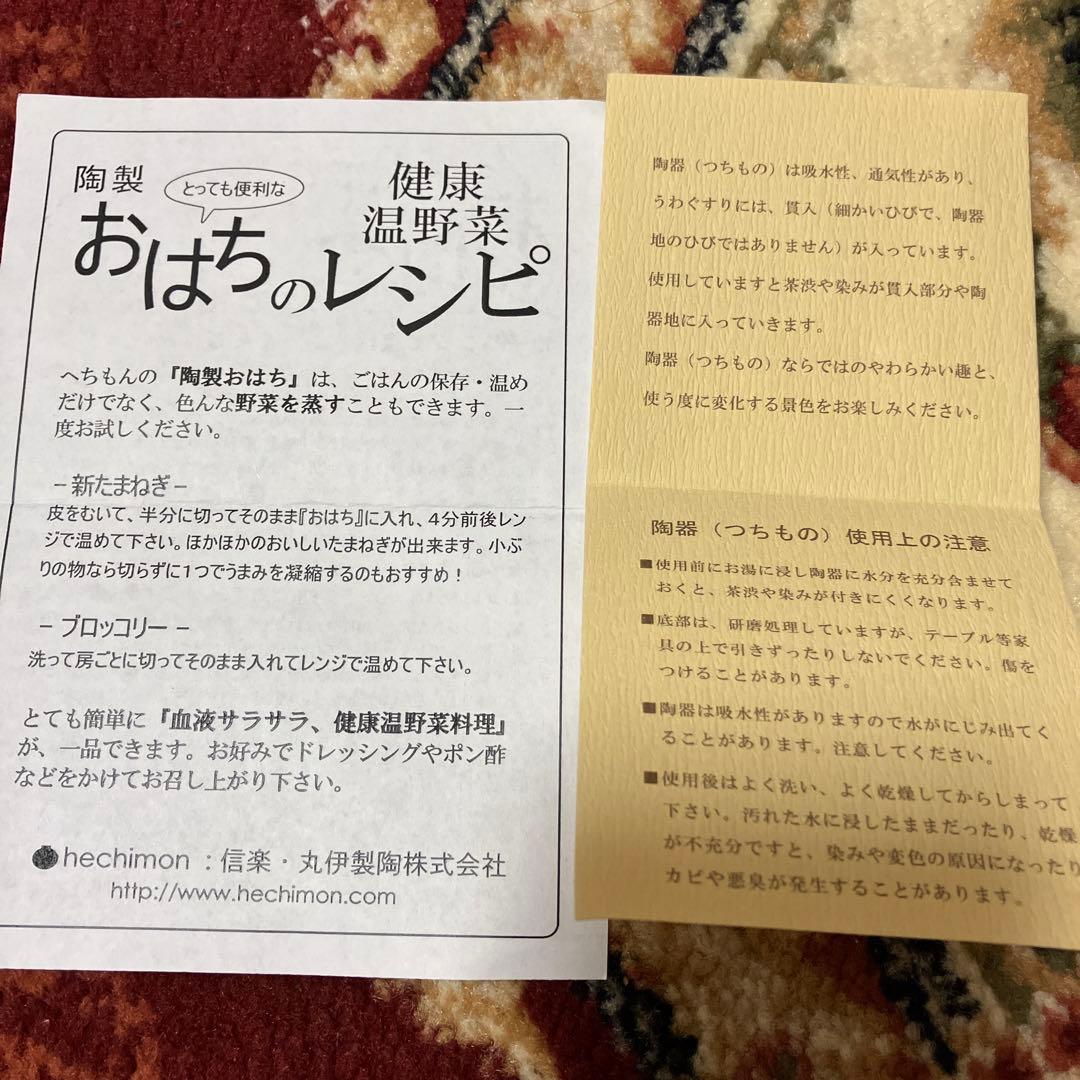 陶製
とっても便利な
健康
温野菜
おはちのレシピ
へちもんの『陶製おはち』は、ごはんの保存・温め
だけでなく、色んな野菜を蒸すこともできます。一
度お試しください。
－新たまねぎ－
皮をむいて、半分に切ってそのまま『おはち』に入れ、４分前後レン
ジで温めて下さい。ほかほかのおいしいたまねぎが出来ます。小ぶ
りの物なら切らずに１つでうまみを凝縮するのもおすすめ！
－ブロッコリー－
洗って房ごとに切ってそのまま入れてレンジで温めて下さい。
とても簡単に『血液サラサラ、健康温野菜料理』
が、一品できます。お好みでドレッシングやポン酢
などをかけてお召し上がり下さい。
hechimon：信楽・丸伊製陶株式会社
http://www.hechimon.com
陶器（つちもの）は吸水性、通気性があり、
うわぐすりには、貫入（細かいひびで、陶器
地のひびではありません）が入っています。
使用していますと茶渋や染みが貫入部分や陶
器地に入っていきます。
陶器（つちもの）ならではのやわらかい趣と、
使う度に変化する景色をお楽しみください。
陶器（つちもの）使用上の注意
■使用前にお湯に浸し陶器に水分を充分含ませて
おくと、茶渋や染みが付きにくくなります。
■底部は、研磨処理していますが、テーブル等家
具の上で引きずったりしないでください。傷を
つけることがあります。
■陶器は吸水性がありますので水がにじみ出てく
ることがあります。注意してください。
■使用後はよく洗い、よく乾燥してからしまって
下さい。汚れた水に浸したままだったり、乾燥
が不充分ですと、染みや変色の原因になったり
カビや悪臭が発生することがあります。